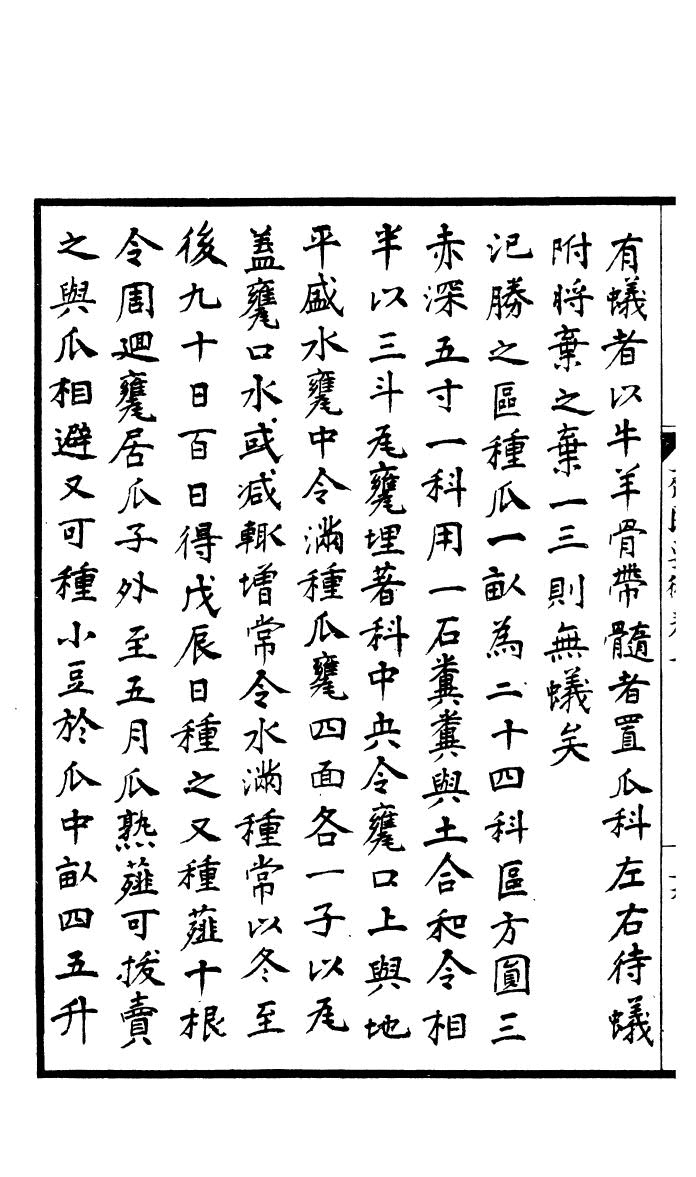 有蟻者以牛羊骨帶髓者置瓜科左右待蟻
附將棄之棄一三則無蟻矣
氾勝之區種瓜一畝為二十四科區方圓三
赤深五寸一科用一石糞糞與土合和令相
半以三斗瓦甕埋著科中央令甕口上與地
平盛水甕中令滿種瓜甕四面各一子以瓦
蓋甕口水或減輙增常令水滿種常以冬至
後九十日百日得戊辰日種之又種薤十根
令周迴甕居瓜子外至五月瓜熟薤可拔賣
之與瓜相避又可種小豆於瓜中畝四五升